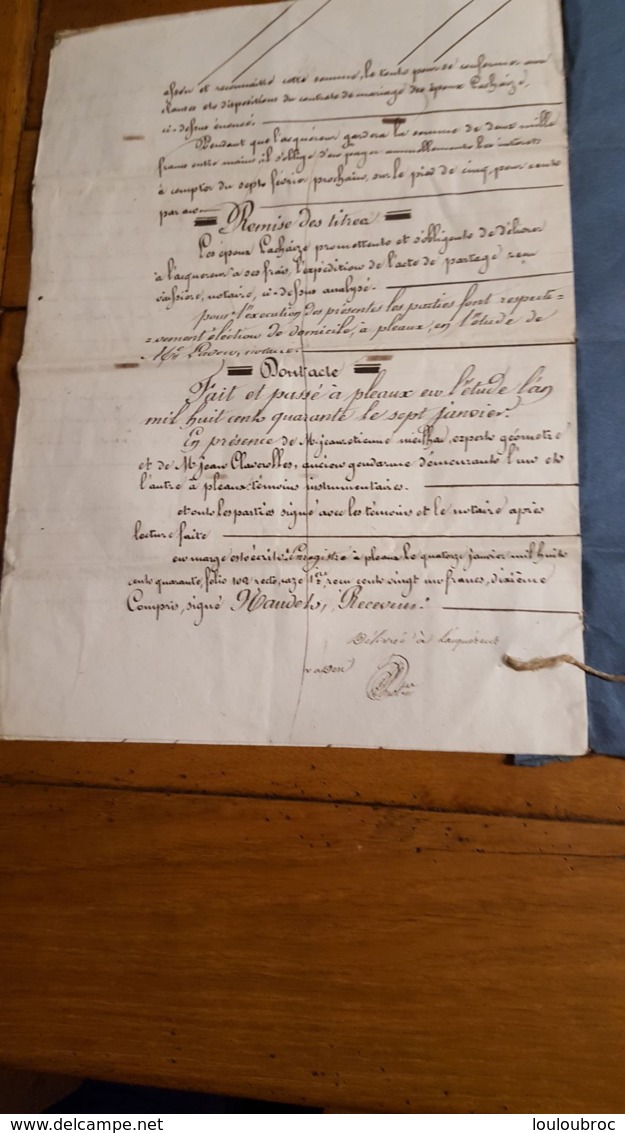 et reconnaître cette somme, le tout pour se conformer aux
clauses et dispositions du contrat de mariage des époux Lachaize,
ci-dessus énoncé.
Pendant que l'acquéreur gardera la somme de deux mille
francs entre mains il s'oblige d'en payer annuellement les intérêts
à compter du sept février prochain, sur le pied de cinq pour cent
par an
Remise des titres
Les époux Lachaize promettent et s'obligent de délivrer
à l'acquéreur à ses frais, l'expédition de l'acte de partage reçu
notaire, ci-dessus analysé.
pour l'exécution des présentes les parties font respecti-
-vement élection de domicile, à pleaux, en l'étude de
Me notaire.
Dont acte
Fait et passé à pleaux en l'étude l'an
mil huit cent quarante le sept janvier.
En présence de M. jean etienne meilhac, expert géomètre
et de M. jean Claverolles, ancien gendarme demeurant l'un et
l'autre à pleaux témoins instrumentaires.
et ont les parties signé avec les témoins et le notaire après
lecture faite
en marge est écrit: Enregistré à pleaux le quatorze janvier mil huit
cent quarante, folio 102 recto, case 1re, reçu cent vingt un francs, dixième
Compris, signé Naudet, Receveur.
Délivrée à l'acquéreur
delcampe.net
louloubroc